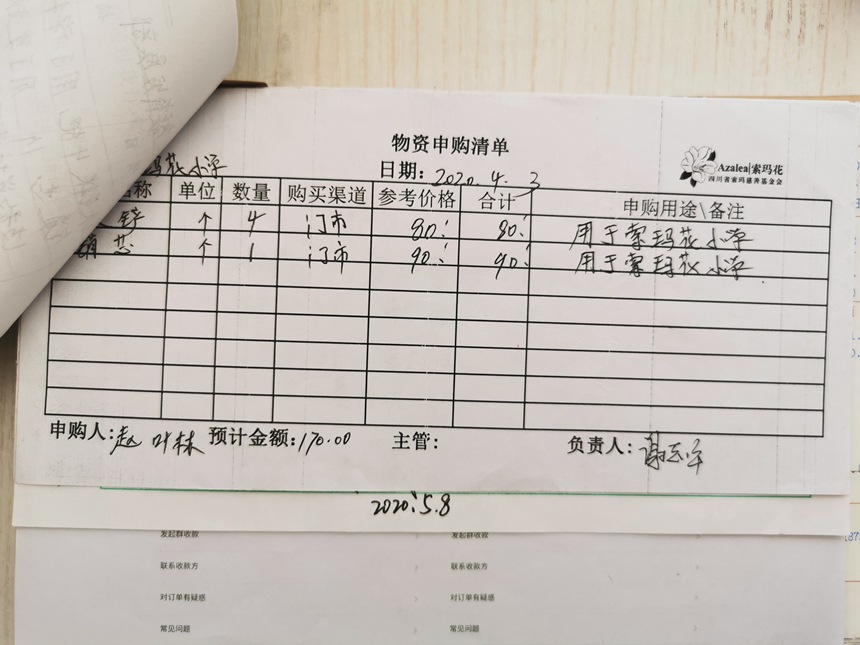 物资申购清单
Azalea|索玛花
四川省索玛慈善基金会
玛花小学
日期：2020.4.3
名称 单位 数量 购买渠道 参考价格 合计 申购用途\备注
个 4 门市 80. 80. 用于索玛花小学
芯 个 1 门市 90. 90. 用于索玛花小学
申购人：赵叶林 预计金额：170.00 主管： 负责人：谢
2020.5.8
发起群收款 发起群收款
联系收款方 联系收款方
对订单有疑惑 对订单有疑惑
常见问题 常见问题